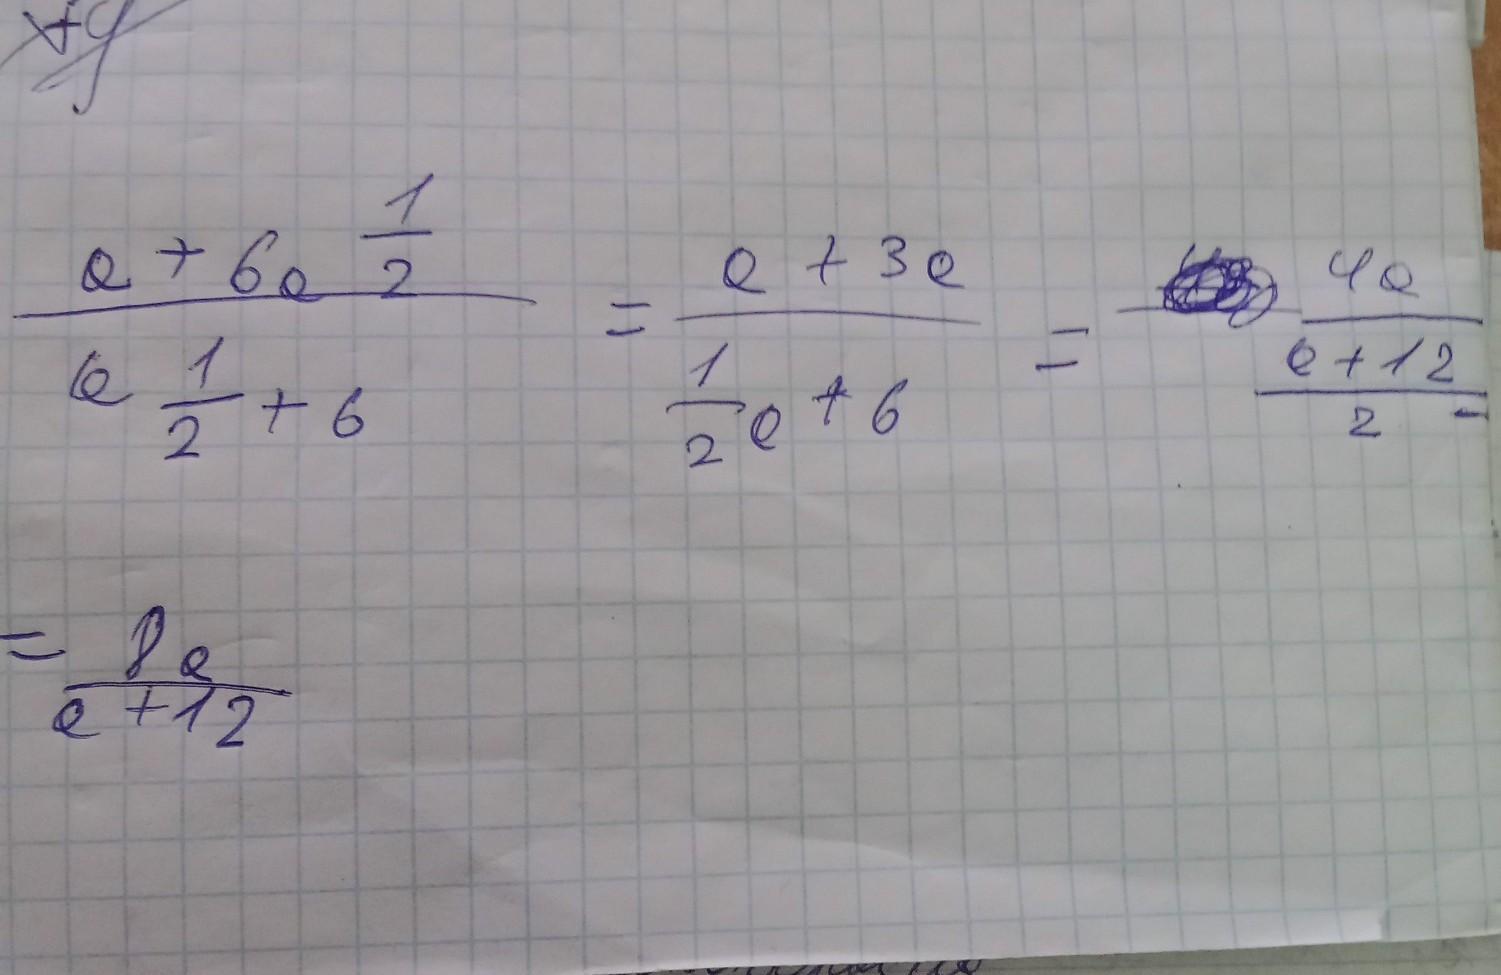 a + 6a 1/2 / a 1/2 + 6 = a + 3a / 1/2 a + 6 = 4a / a + 12 / 2 =
= 8a / a + 12